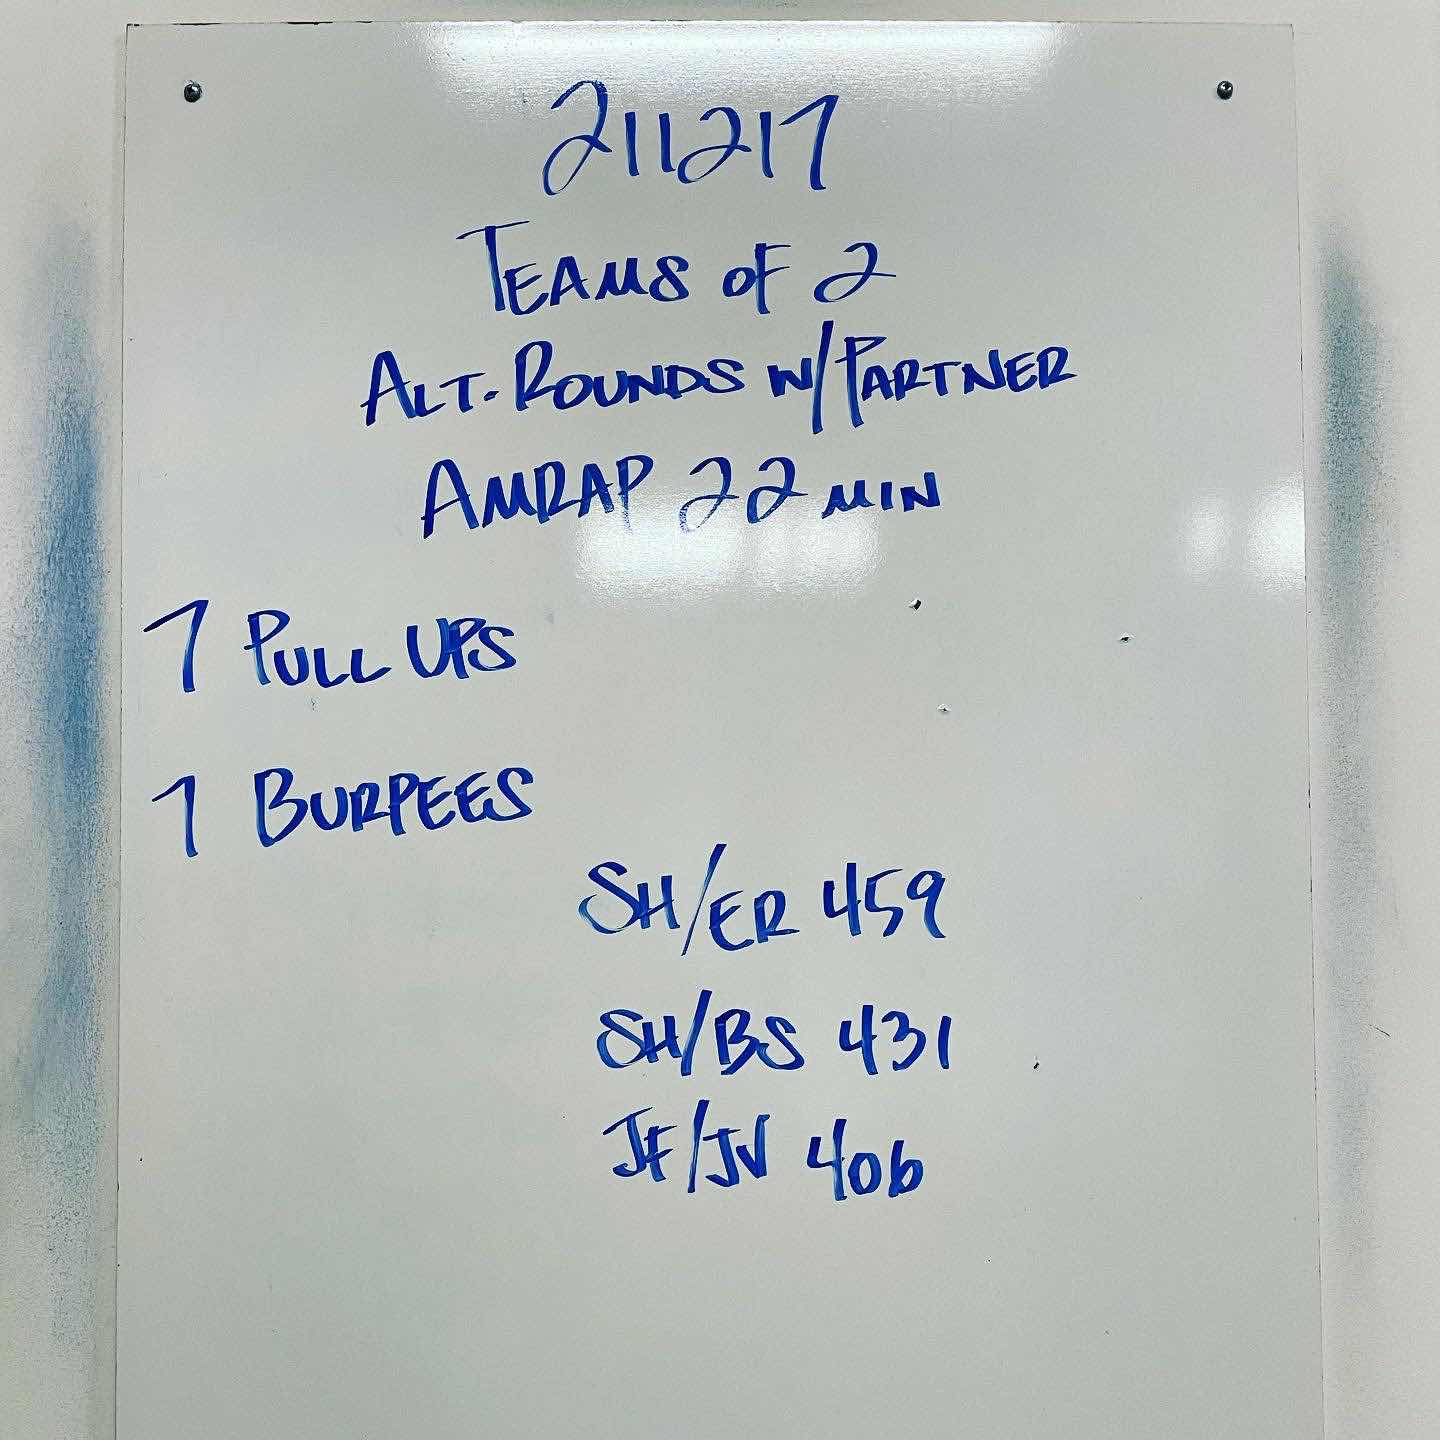 211217
TEAMS OF 2
ALT. ROUNDS W/PARTNER
AMRAP 22 MIN
7 PULL UPS
7 BURPEES
SH/ER 459
SH/BS 431
JF/JV 406